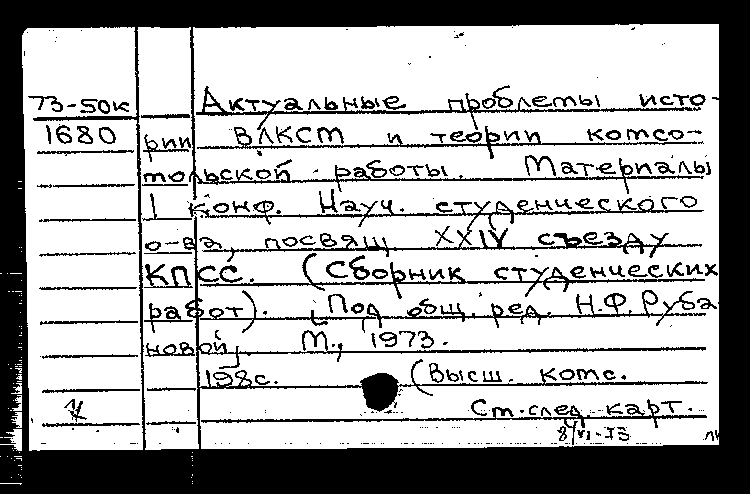 73-50к Актуальные проблемы исто-
1680 рии ВЛКСМ и теории комсо-
мольской работы. Материалы
I конф. Науч. студенческого
о-ва, посвящ. XXIV съезду
КПСС. (Сборник студенческих
работ). [Под общ. ред. Н.Ф. Руба-
новой]. М., 1973.
198с. (Высш. комс.
См. след. карт.
8/VI-73